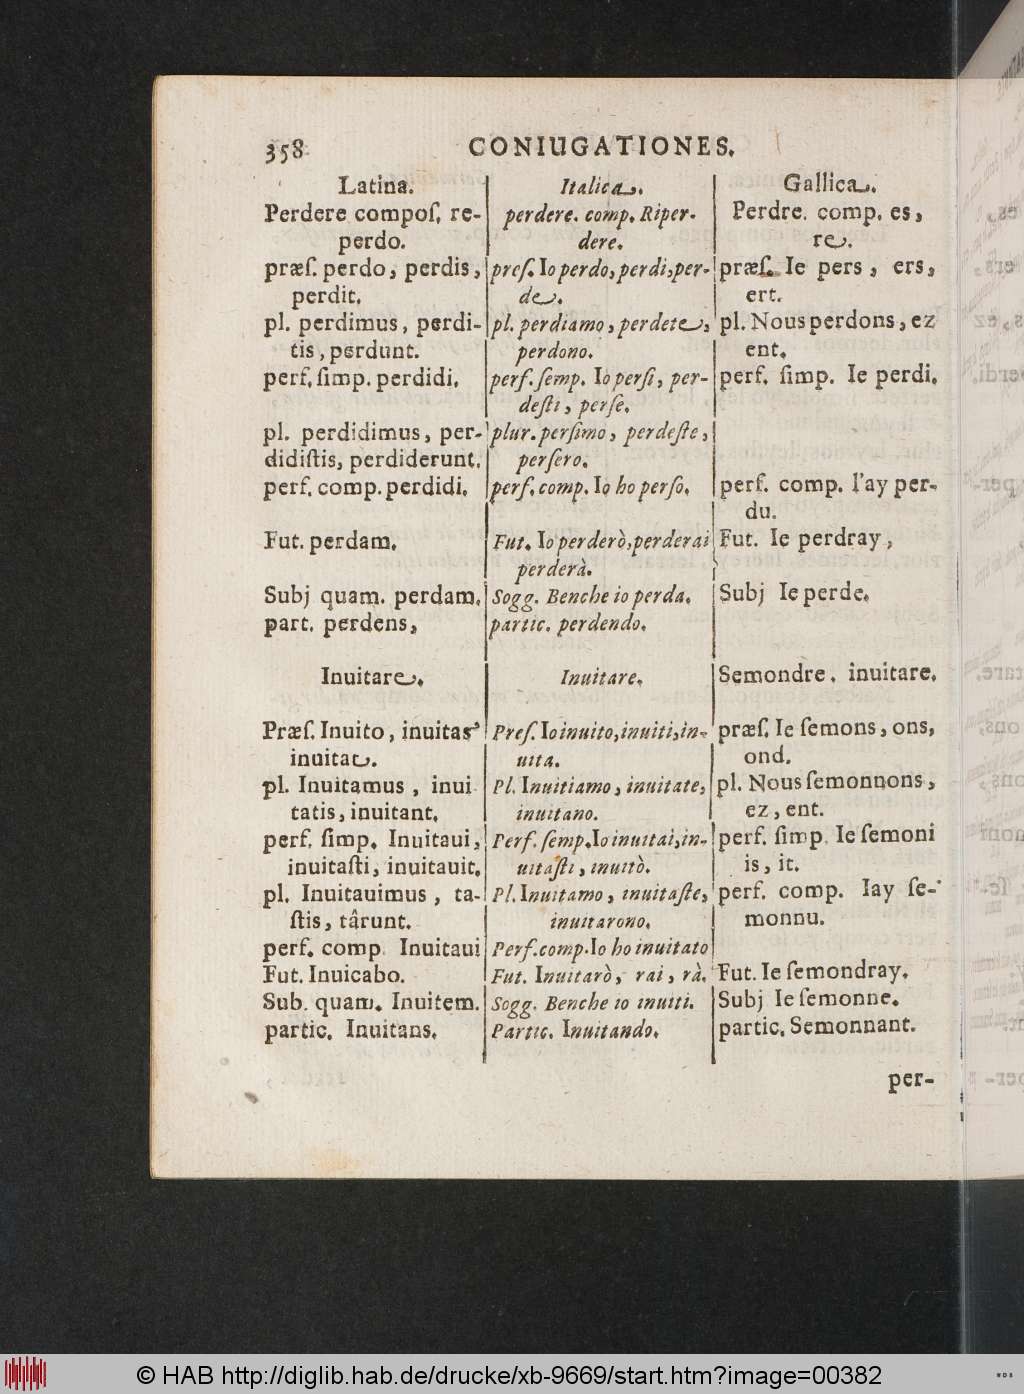 358 CONIUGATIONES.
Latina.
Perdere compoſ. re-
perdo.
præſ. perdo, perdis,
perdit.
pl. perdimus, perdi-
tis, perdunt.
perf. ſimp. perdidi.
pl. perdidimus, per-
didiſtis, perdiderunt.
perf. comp. perdidi.
Fut. perdam.
Subj quam. perdam.
part. perdens,
Inuitare.
Præſ. Inuito, inuitas,
inuitat.
pl. Inuitamus, inui
tatis, inuitant.
perf. ſimp. Inuitaui,
inuitaſti, inuitauit.
pl. Inuitauimus, ta-
ſtis, târunt.
perf. comp. Inuitaui
Fut. Inuicabo.
Sub. quam. Inuitem.
partic. Inuitans.
Italica.
perdere. comp. Riper-
dere.
preſ. Io perdo, perdi, per-
de.
pl. perdiamo, perdete,
perdono.
perf. ſemp. Io perſi, per-
deſti, perſe.
plur. perſimo, perdeſte,
perſero.
perf. comp. Io ho perſo.
Fut. Io perderò, perderai
perderà.
Sogg. Benche io perda.
partic. perdendo.
Inuitare.
Preſ. Io inuito, inuiti, in-
uita.
Pl. Inuitiamo, inuitate,
inuitano.
Perf. ſemp. Io inuitai, in-
uitaſti, inuitò.
Pl. Inuitamo, inuitaſte,
inuitarono.
Perf. comp. Io ho inuitato
Fut. Inuitarò, rai, rà.
Sogg. Benche io inuiti.
Partic. Inuitando.
Gallica.
Perdre. comp. es,
re.
præſ. Ie pers, ers,
ert.
pl. Nous perdons, ez
ent.
perf. ſimp. Ie perdi.
perf. comp. l'ay per-
du.
Fut. Ie perdray,
Subj Ie perde.
Semondre. inuitare.
præſ. Ie ſemons, ons,
ond.
pl. Nous ſemonnons,
ez, ent.
perf. ſimp. Ie ſemoni
is, it.
perf. comp. Iay ſe-
monnu.
Fut. Ie ſemondray.
Subj Ie ſemonne.
partic. Semonnant.
per-
© HAB http://diglib.hab.de/drucke/xb-9669/start.htm?image=00382